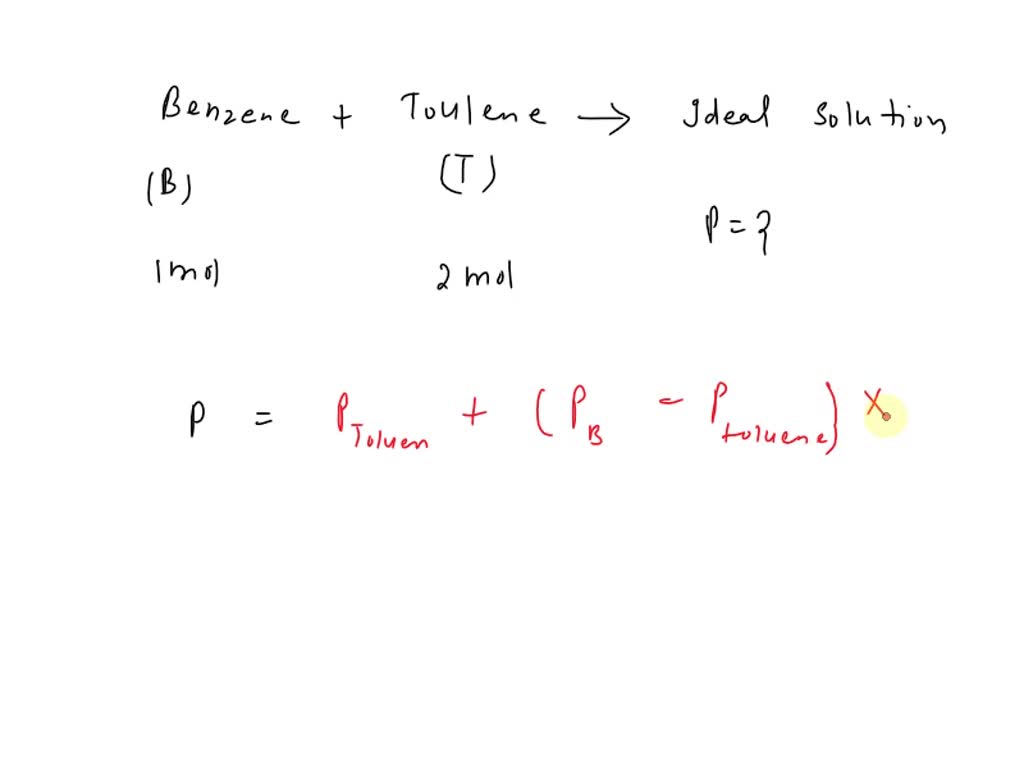 Benzene + Toulene → Ideal solution
(B) (T)
P = ?
1 mol 2 mol
P = P Toluen + (P B - P toluene) X